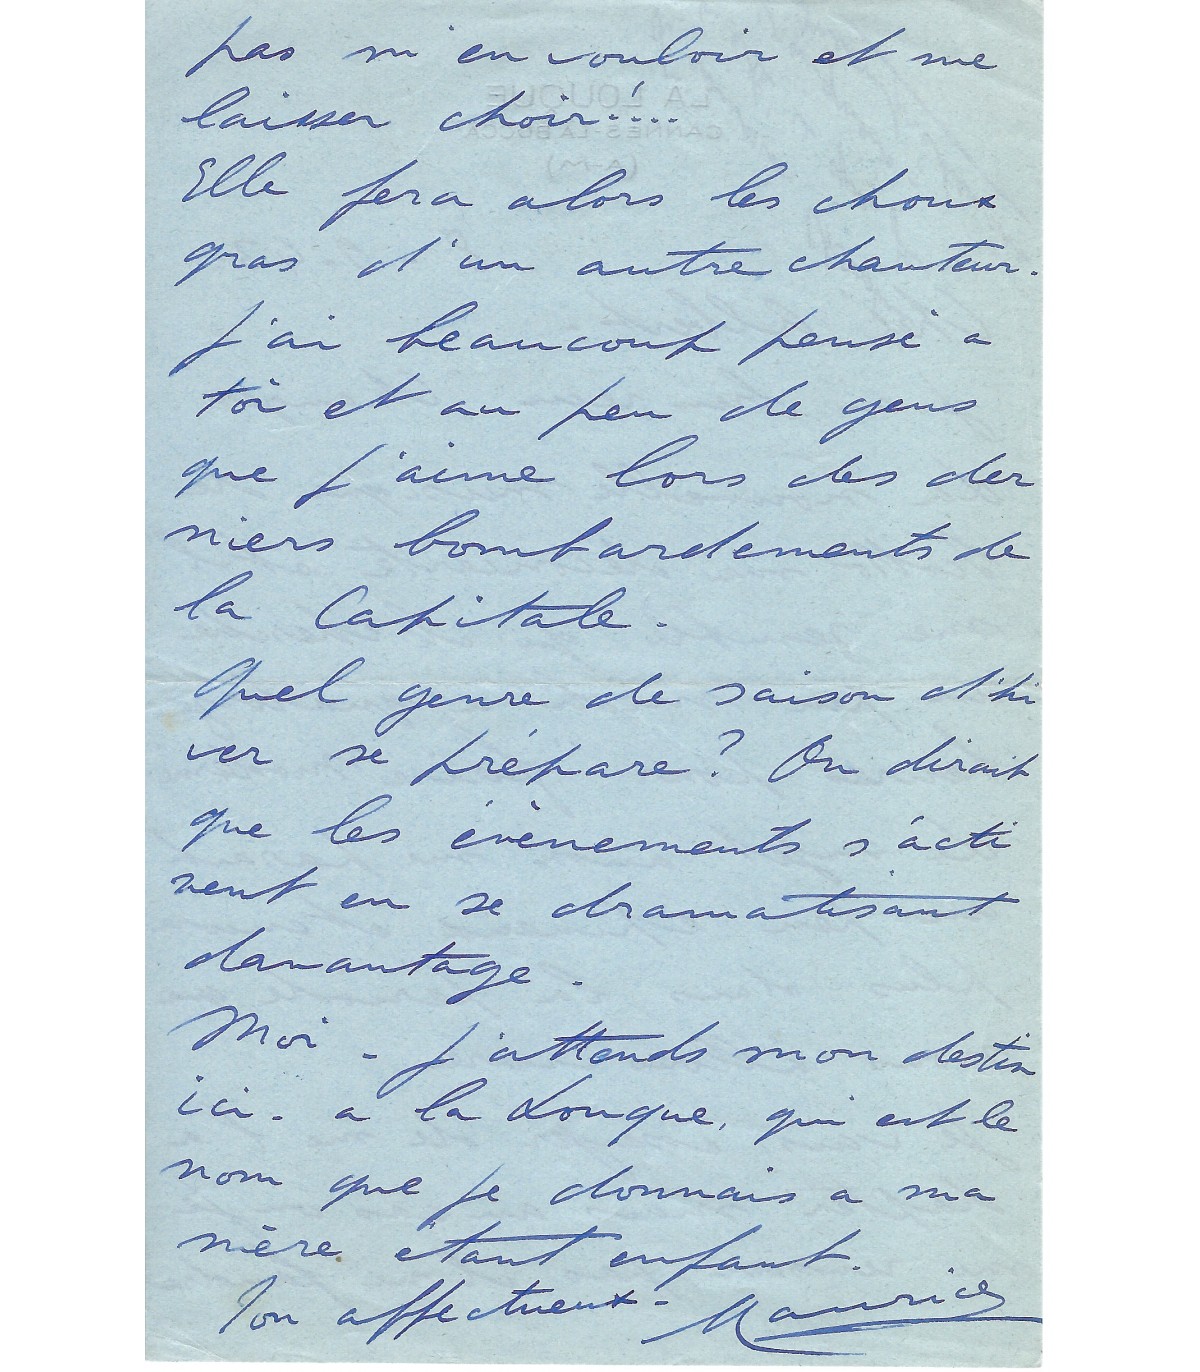 pas m'en vouloir et me
laisser choir!....
Elle fera alors les choux
gras d'un autre chanteur.
J'ai beaucoup pensé a
toi et au peu de gens
que j'aime lors des der
niers bombardements de
la Capitale.
Quel genre de saison d'hi
ver se prépare? On dirait
que les évènements s'acti
vent en se dramatisant
davantage.
Moi - j'attends mon destin
ici - a la Louque, qui est le
nom que je donnais a ma
mère étant enfant.
Ton affectueux - Maurice
LA LOUQUE
CANNES-LA BOCCA
(A-M)